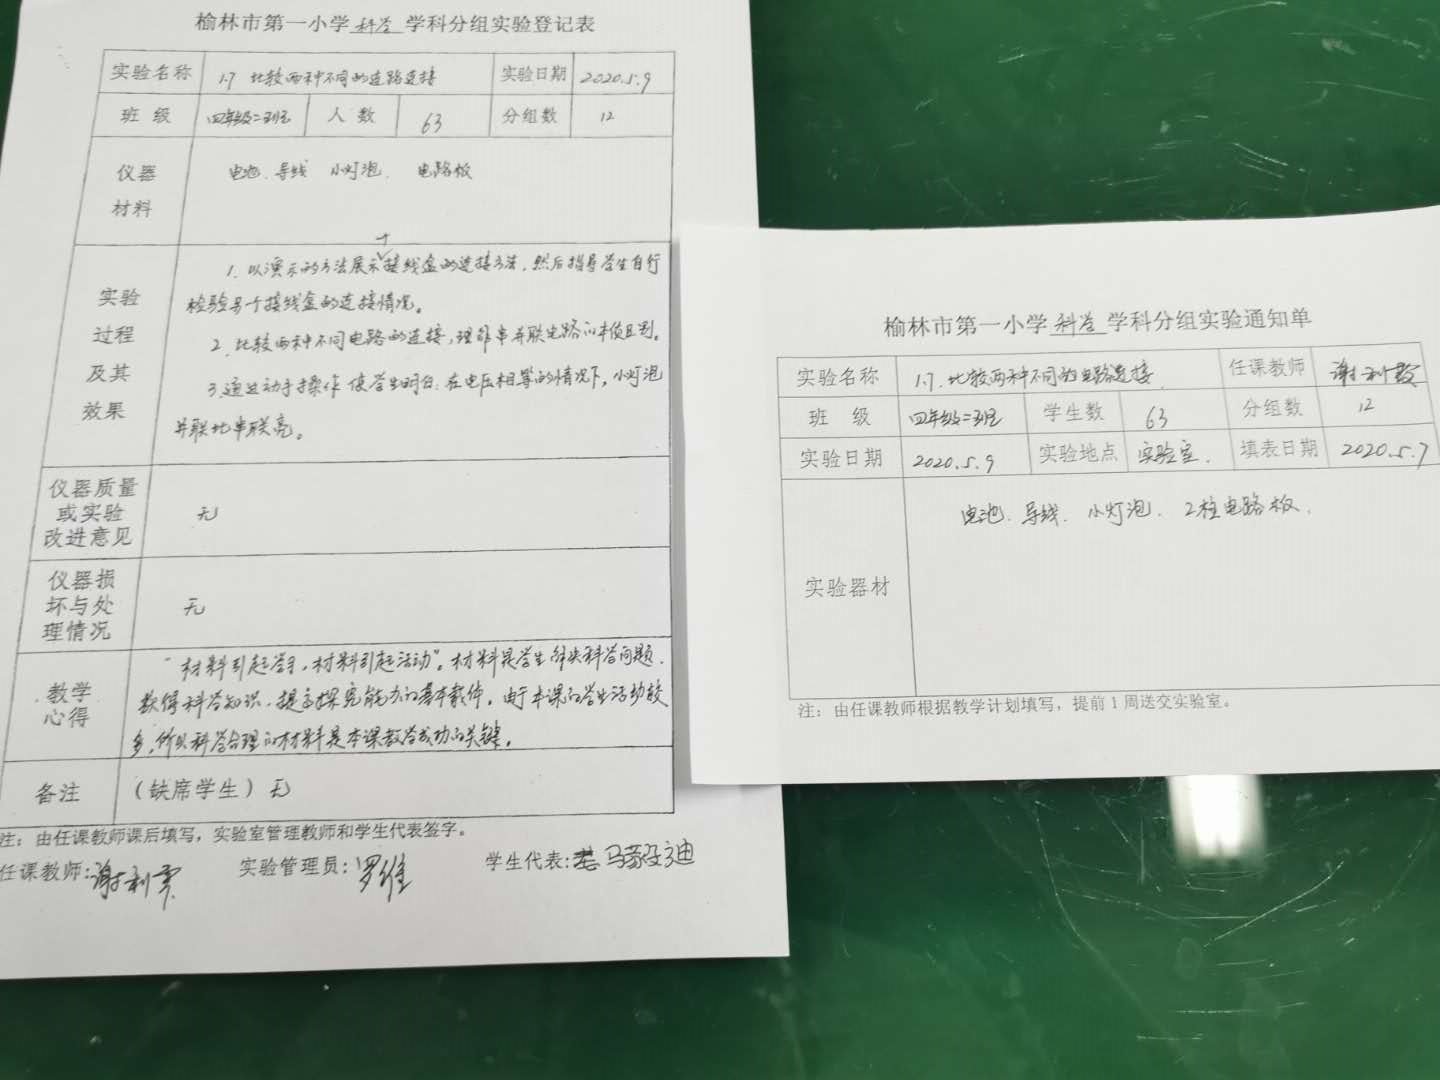 榆林市第一小学 科学 学科分组实验登记表
实验名称 1.7 比较两种不同的电路连接 实验日期 2020.5.9
班 级 四年级二班 人 数 63 分组数 12
仪器
材料
电池、导线 小灯泡、 电路板
实验
过程
及其
效果
1. 以演示的方法展示接线盒的连接方法,然后指导学生自行
检验另一个接线盒的连接情况。
2. 比较两种不同电路的连接,理解串并联电路的本质区别。
3.通过动手操作使学生明白:在电压相等的情况下,小灯泡
并联比串联亮。
仪器质量
或实验
改进意见
无
仪器损
坏与处
理情况
无
教学
心得
“材料引起学习,材料引起活动”。材料是学生解决科学问题、
获得科学知识、提高探究能力的基本载体。由于本课的学生活动较
多,所以科学合理的材料是本课教学成功的关键。
备注 (缺席学生)无
注:由任课教师课后填写,实验室管理教师和学生代表签字。
任课教师:谢利 实验管理员:罗维 学生代表:马 迪
榆林市第一小学 科学 学科分组实验通知单
实验名称 1.7.比较两种不同的电路连接 任课教师 谢利
班 级 四年级二班 学生数 63 分组数 12
实验日期 2020.5.9 实验地点 实验室. 填表日期 2020.5.7
实验器材
电池、导线、小灯泡、2柱电路板.
注:由任课教师根据教学计划填写,提前1周送交实验室。